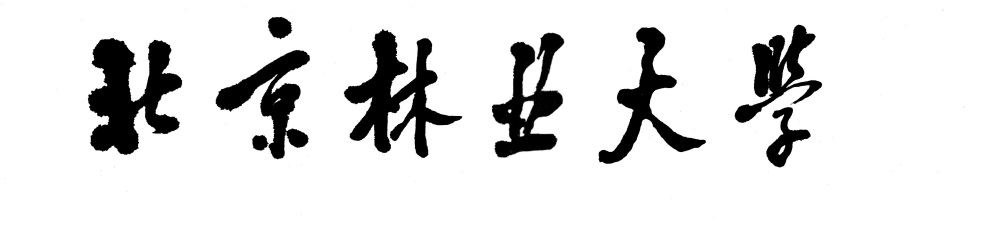 北京林业大學